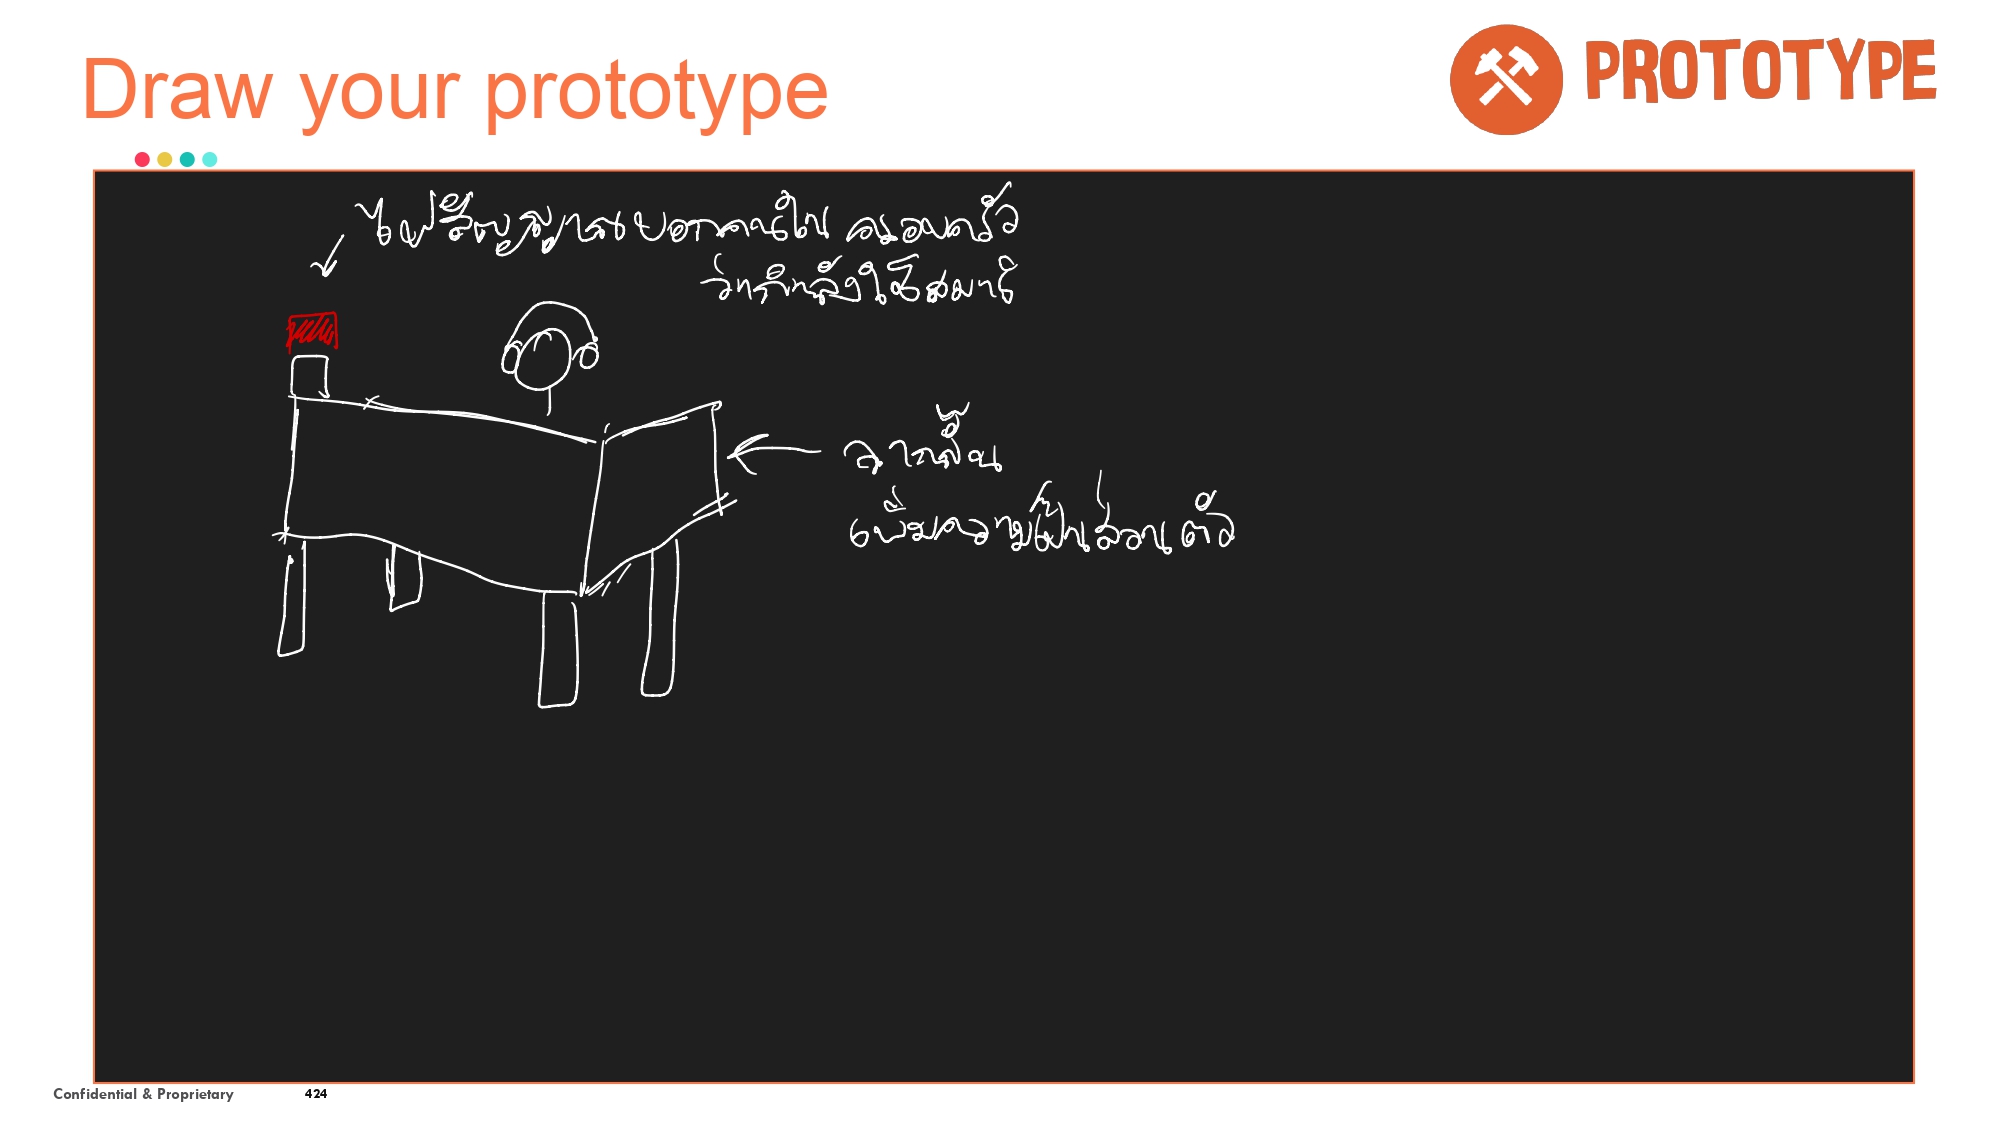 Draw your prototype
PROTOTYPE
ไฟสัญญาณบอกคนในครอบครัว
ว่ากำลังใช้สมาธิ
ฉากกั้น
เพิ่มความเป็นส่วนตัว
Confidential & Proprietary 424